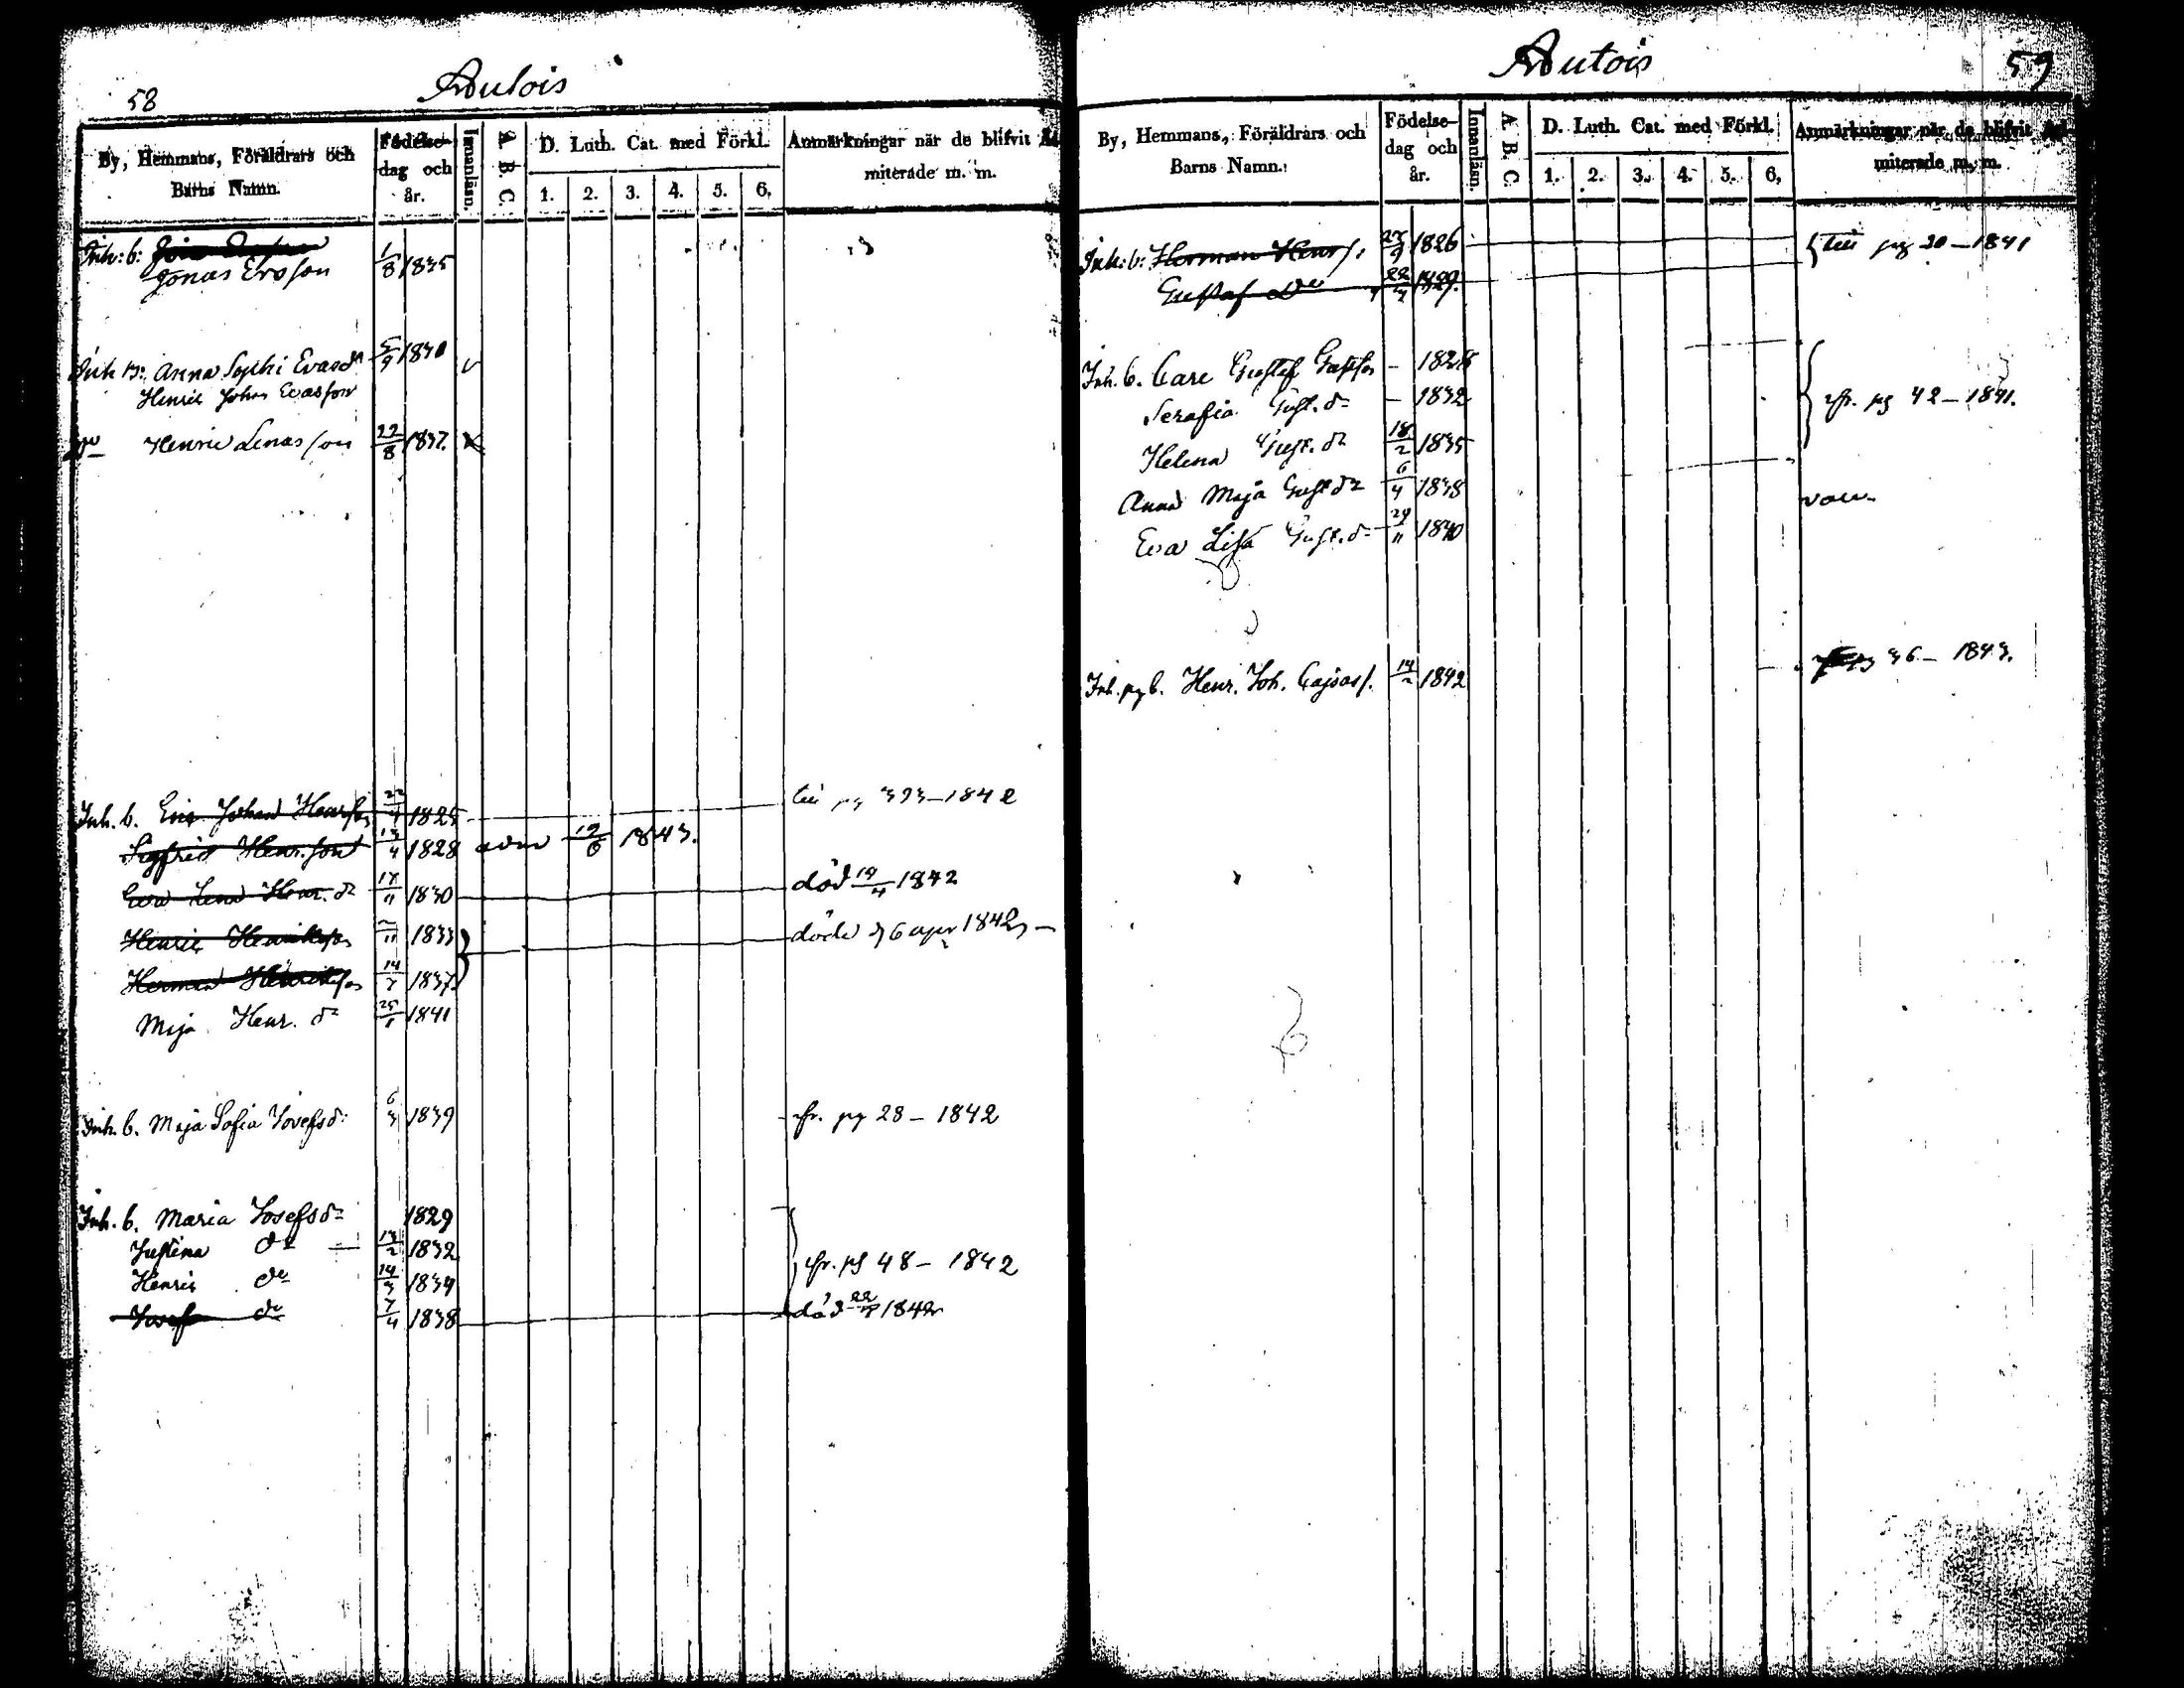 58
Autois
By, Hemmans, Föräldrars och Barns Namn.
Födelse-dag och år.
Innanläsn.
A B C
D. Luth. Cat. med Förkl.
1. 2. 3. 4. 5. 6.
Anmärkningar när de blifvit Ad-
miterade m. m.
Inh: b:
Jonas Ersson 1/8 1835
Inh b: Anna Sophi Evasdr 5/9 1830
Henric Johan Evasson
Do Henric Lenasson 22/8 1837.
Inh. b. Eric Johan Henrsson 22/4 1825 till pg 323-1842
Sigfrid Henr.son 13/4 1828 adm 12/6 1843.
Eva Lena Henr. dr 17/11 1830 död 19/4 1842
Henric Henriksson 2/11 1833 döde d 6 apr 1842
Herman Henriksson 14/7 1837
Maja Henr. dr 25/1 1841
Inh. b. Maja Sofia Josefsd: 6/3 1839 fr. pg 28 - 1842
Inh. b. Maria Josefsdr 1829
Justina dr 13/2 1832
Henric do 14/3 1834 fr. pg 48 - 1842
Josef do 7/4 1838 död 22/4 1842
Autois
59
By, Hemmans, Föräldrars och
Barns Namn.
Födelse-dag och år.
Innanläsn.
A. B. C.
D. Luth. Cat. med Förkl.
1. 2. 3. 4. 5. 6.
Anmärkningar när de blifvit Ad-
miterade m. m.
Inh: b: Herman Henr s. 27/9 1826 till pg 20-1841
Gustaf do 22/4 1829.
Inh. b. Carl Gustaf Gustfss - 1828
Serafia Gust. dr - 1832 fr. pg 42 - 1841.
Helena Gust. dr 18/2 1835
Anna Maja Gust dr 6/4 1838
Eva Lisa Gust. dr 24/11 1840
Inh. pg b. Henr. Joh. Cajsas s. 14/2 1842 pg 36 - 1843.